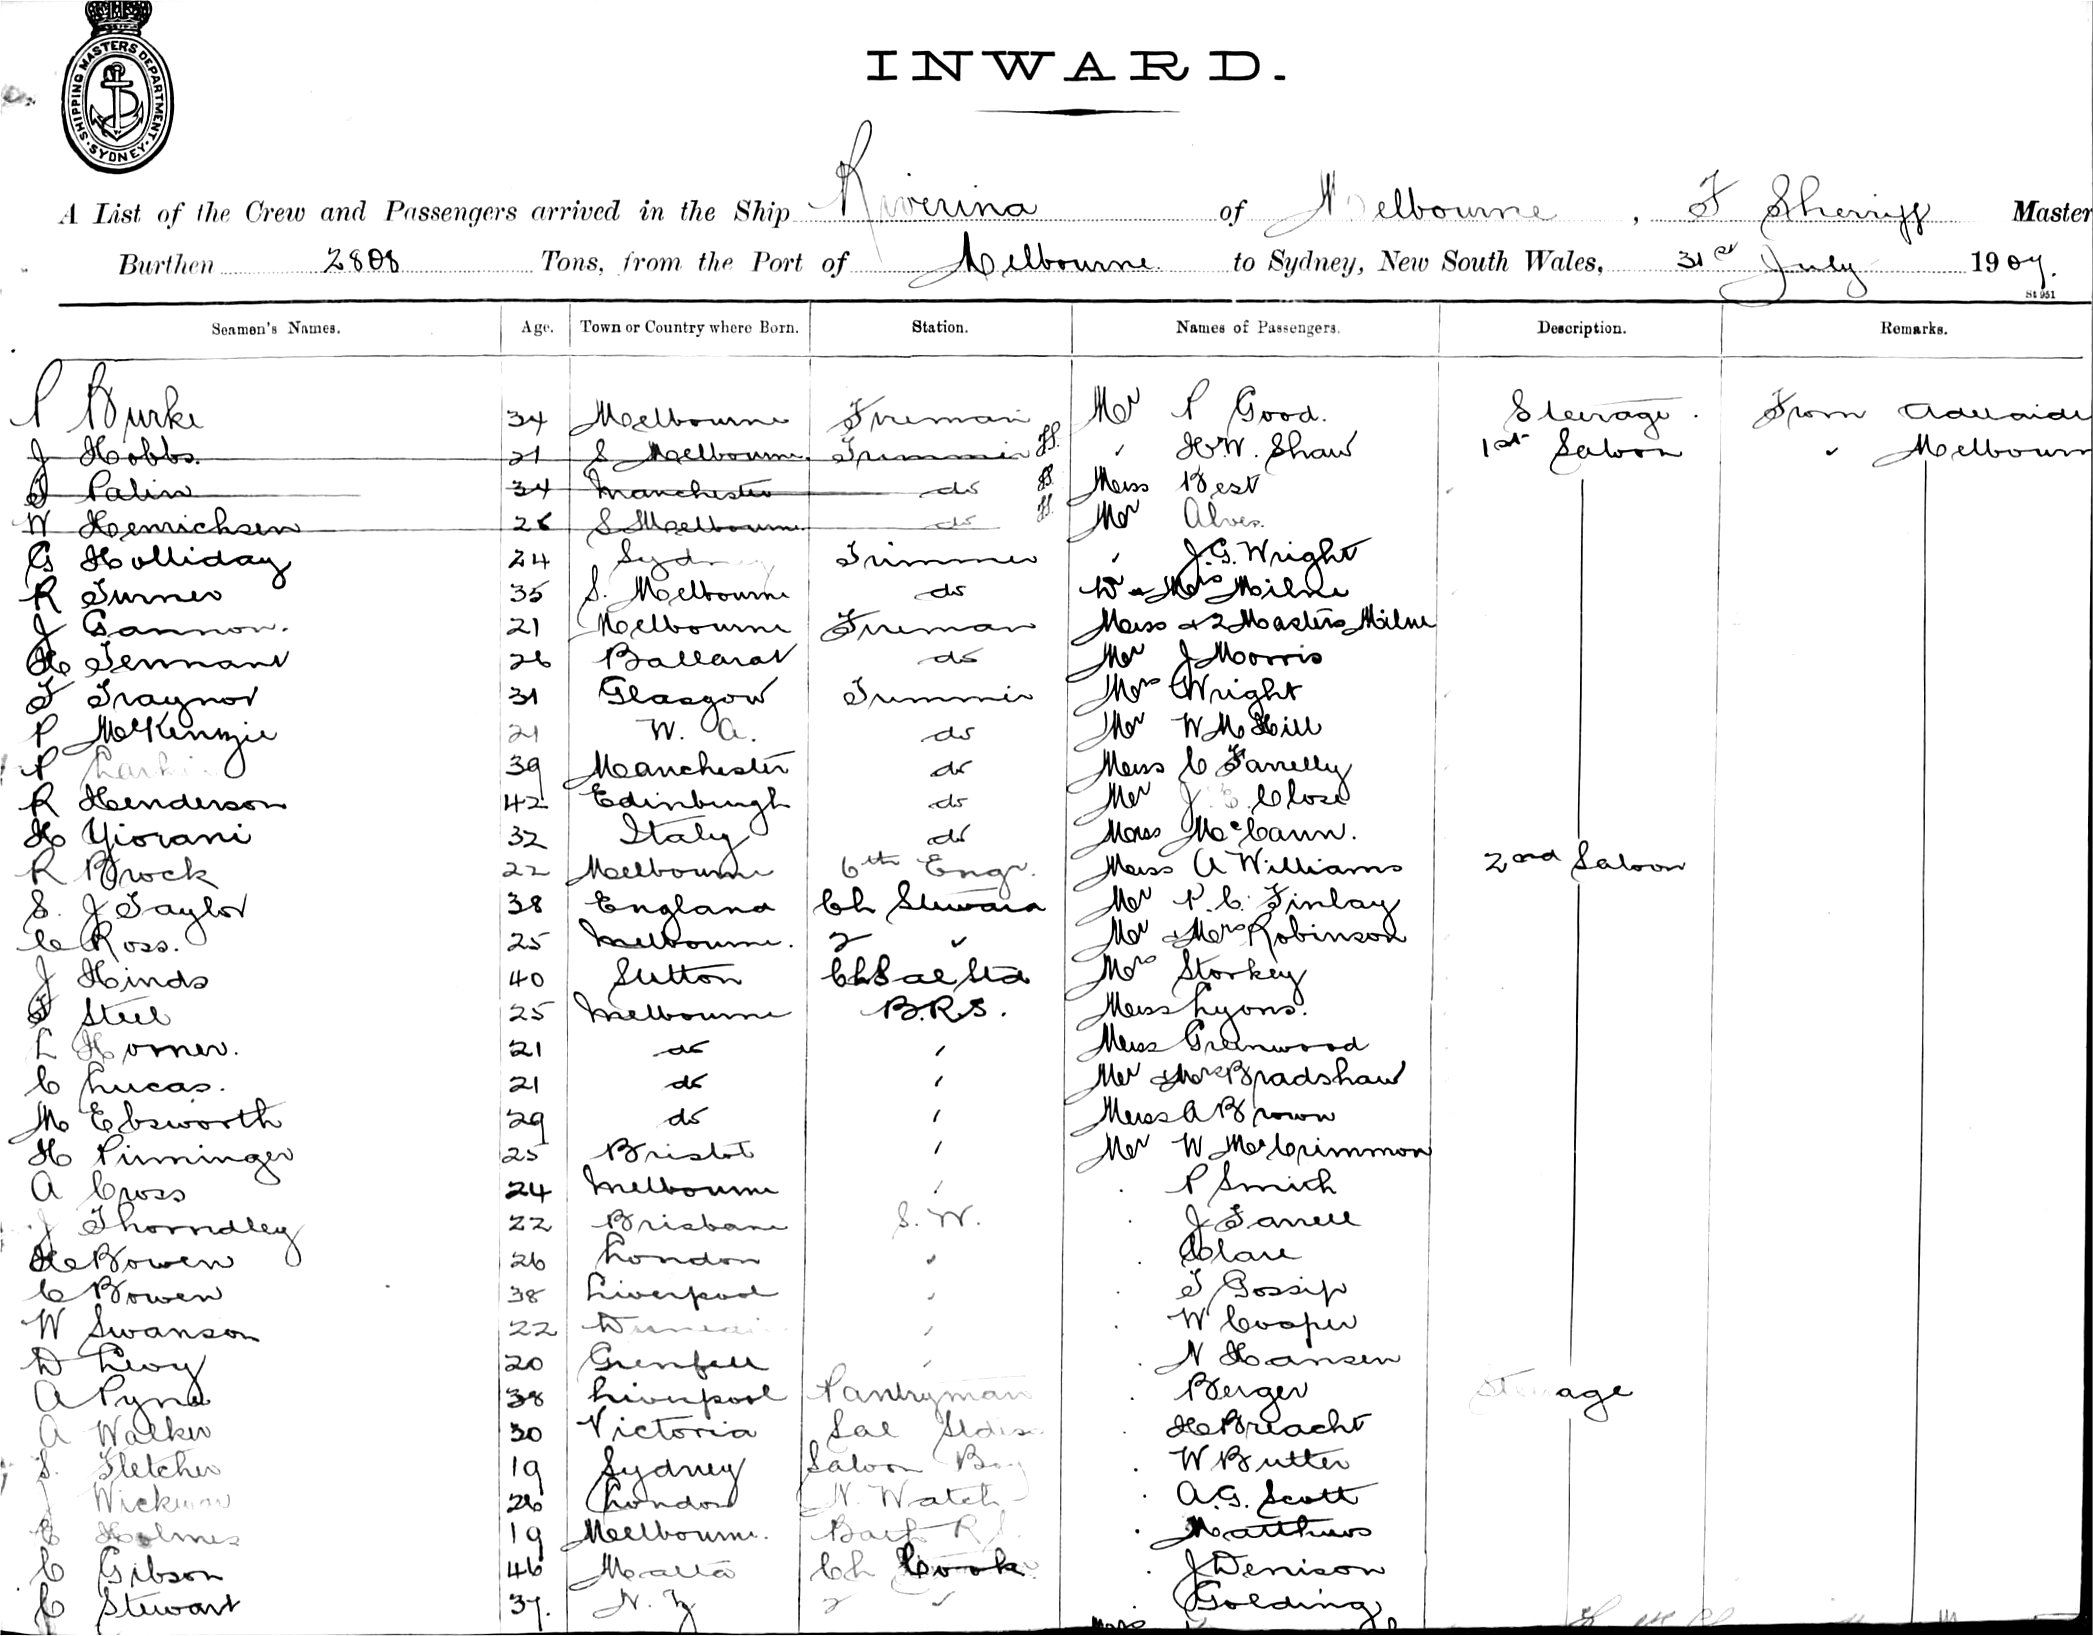 SHIPPING MASTERS DEPARTMENT. SYDNEY.
INWARD.
A List of the Crew and Passengers arrived in the Ship Riverina of Melbourne, F Sherriff Master
Burthen 2808 Tons, from the Port of Melbourne to Sydney, New South Wales, 31st July 1907.
St 951
Seamen's Names. Age. Town or Country where Born. Station. Names of Passengers. Description. Remarks.
P Burke 34 Melbourne Fireman Mr P Good. Steerage. From Adelaide
J Hobbs. 21 S Melbourne. Trimmer " H W. Shaw 1st Saloon " Melbourn
J Palin 34 Manchester do Miss Best
W Henrichsen 26 S Melbourne do Mr Alves.
G Holliday 24 Sydney Trimmer " J. G. Wright
R Turner 35 S. Melbourne do Dr & Mrs Milne
J Gannon. 21 Melbourne Fireman Miss & 2 Masters Milne
H Tennant 26 Ballarat do Mr J Morris
F Traynor 31 Glasgow Trimmer Mrs Wright
P McKenzie 21 W. A. do Mr W M Hill
P Larki 39 Manchester do Miss C Farrelly
R Henderson 42 Edinburgh do Mr J Close
H Yiorani 32 Italy do Miss McCann.
R Brock 22 Melbourne 6th Engr. Miss A Williams 2nd Saloon
S. J Taylor 38 England Ch Steward Mr P. C. Finlay
C Ross. 25 Melbourne. 2 " Mr & Mrs Robinson
J Hinds 40 Sutton Ch Sal Std Mrs Storkey
F Steel 25 Melbourne B.R.S. Miss Lyons.
L Horner. 21 do " Miss Greenwood
C Lucas. 21 do " Mr & Mrs Bradshaw
M Ebsworth 29 do " Miss A Brown
H Pirminger 25 Bristol " Mr W McCrimmon
A Cross 24 Melbourne " P Smith
J Thorndley 22 Brisbane S. W. J Farrell
H Bowen 26 London " Clare
C Bowen 38 Liverpool " T Gossip
W Swanson 22 Dunedin " W Cooper
D Levy 20 Grenfell " N Hansen
A Pyne 38 Liverpool Pantryman Berger Steerage
A Walker 30 Victoria Sal Stdess H Breacht
S. Fletcher 19 Sydney Saloon Boy W Butter
J 26 London N. Watch A. G. Scott
C Holmes 19 Melbourne. R Matthews
C Gibson 46 Malta Ch Cook J Denison
C Stewart 37. N. Z 2 " Golding